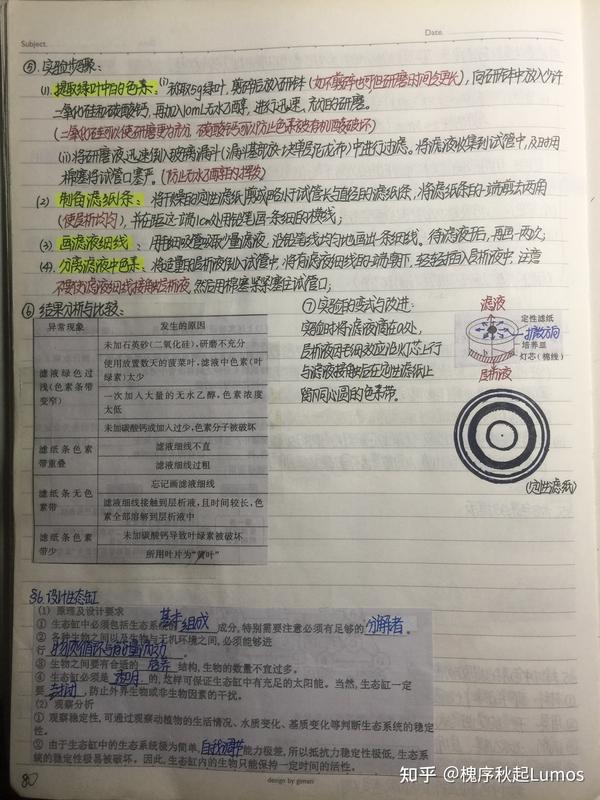 Subject.
Date.
⑤. 实验步骤：
(1). 提取绿叶中的色素：(i) 称取5g绿叶，剪碎后放入研钵(如不剪碎也可但研磨时间会更长)，向研钵中放入少许
二氧化硅和碳酸钙，再加入10mL无水乙醇，进行迅速、充分的研磨。
(二氧化硅可以使研磨更为充分，碳酸钙可以防止色素被有机酸破坏)
(ii) 将研磨液迅速倒入玻璃漏斗(漏斗基部放一块单层尼龙布)中进行过滤。将滤液收集到试管中，及时用
棉塞将试管口塞严。(防止无水乙醇的挥发)
(2) 制备滤纸条：将干燥的定性滤纸剪成略小于试管长与直径的滤纸条，将滤纸条的一端剪去两角
(使层析均匀)，并在距这一端1cm处用铅笔画一条细的横线；
(3) 画滤液细线：用毛细吸管吸取少量滤液，沿铅笔线均匀地画出一条细线。待滤液干后，再画一两次；
(4). 分离滤液中色素：将适量的层析液倒入试管中，将有滤液细线的一端朝下，轻轻插入层析液中，注意
不要使滤液细线接触层析液，然后用棉塞紧紧塞住试管口；
⑥ 结果分析与比较：
异常现象 发生的原因
滤液绿色过浅(色素条带变窄)
未加石英砂(二氧化硅)，研磨不充分
使用放置数天的菠菜叶，滤液中色素(叶
绿素)太少
一次加入大量的无水乙醇，色素浓度
太低
未加碳酸钙或加入过少，色素分子被破坏
滤纸条色素带重叠
滤液细线不直
滤液细线过粗
滤纸条无色素带
忘记画滤液细线
滤液细线接触到层析液，且时间较长，色
素全部溶解到层析液中
滤纸条色素带少
未加碳酸钙导致叶绿素被破坏
所用叶片为“黄叶”
⑦ 实验的变式与改进：
实验时将滤液滴在a处，
层析液因毛细效应沿灯芯上行
与滤液接触后在定性滤纸上
留下同心圆的色素带。
滤液
定性滤纸
扩散方向
培养皿
灯芯(棉线)
层析液
(定性滤纸)
§6. 设计生态缸
(1) 原理及设计要求
① 生态缸中必须包括生态系统的 基本组成 成分，特别需要注意必须有足够的 分解者 。
② 各种生物之间以及生物与无机环境之间，必须能够进
行 物质循环与能量流动
③ 生物之间要有合适的 营养 结构，生物的数量不宜过多。
④ 生态缸必须是 透明 的，这样可保证生态缸中有充足的太阳能。当然，生态缸一定
要 封闭 ，防止外界生物或非生物因素的干扰。
(2) 观察分析
① 观察稳定性，可通过观察动植物的生活情况、水质变化、基质变化等判断生态系统的稳定
性。
② 由于生态缸中的生态系统极为简单，自我调节能力极差，所以抵抗力稳定性极低，生态系
统的稳定性极易被破坏。因此，生态缸内的生物只能保持一定时间的活性。
80
design by gimeri
知乎 @槐序秋起Lumos